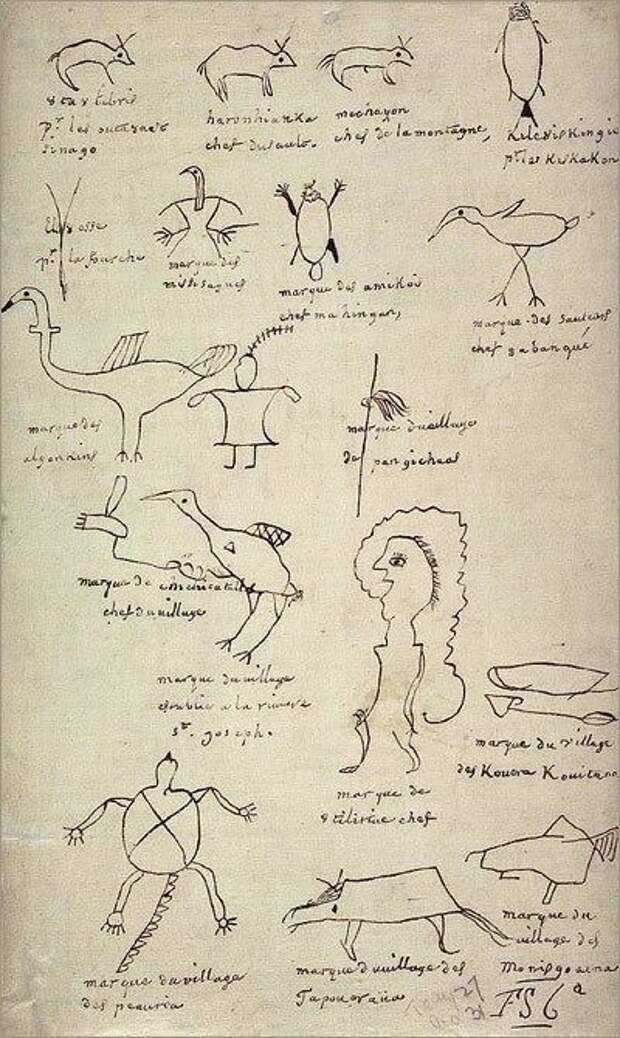 8tastibris
pr les outasaes
sinago
haronhiateka
chef dusault.
mechayon
chef de la montagne,
Kileuiskingie
pr les Kiskakon
El8osse
pr la fourche
marque des
missisagues
marque des amikois
chef mahingan,
marque des sauteurs
chef 8abangué
marque des
algonkins
marque du village
de pangicheas
marque de chichicatalo
chef du village
marque du village
establie a la riviere
st. joseph.
marque de
8tilirine chef
marque du village
des Kouera Kouitana
marque du village
des peauria
marque du village des
Tapouaraüa
marque du
village des
Monisgouena
FS 6a